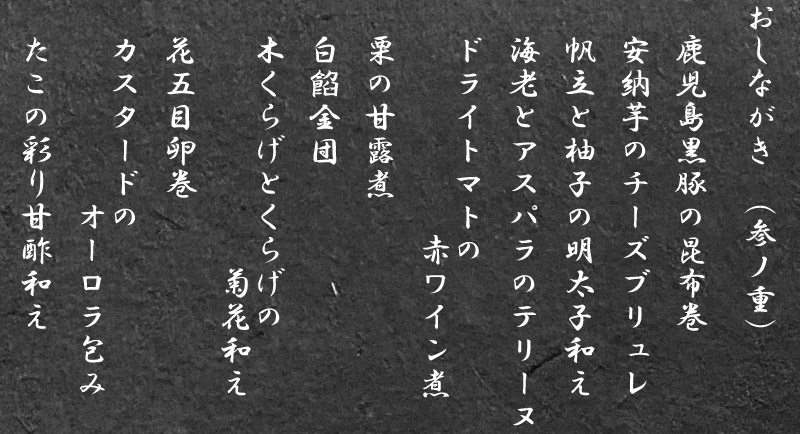 おしながき （参ノ重）
鹿児島黒豚の昆布巻
安納芋のチーズブリュレ
帆立と柚子の明太子和え
海老とアスパラのテリーヌ
ドライトマトの
赤ワイン煮
栗の甘露煮
白餡金団
木くらげとくらげの
菊花和え
花五目卵巻
カスタードの
オーロラ包み
たこの彩り甘酢和え